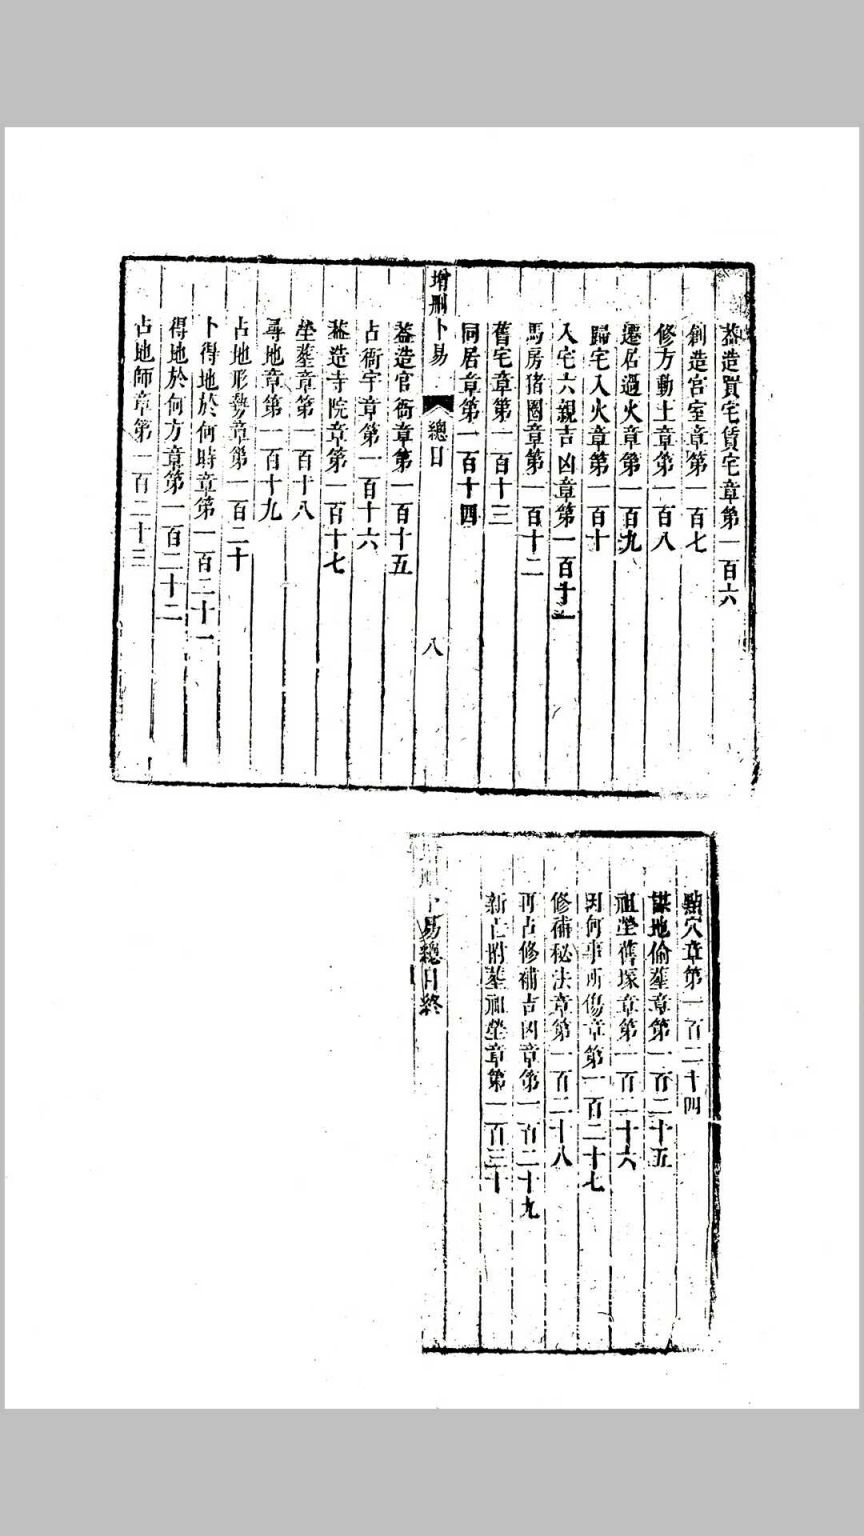 蓋造買宅賃宅章第一百六
創造宮室章第一百七
修方動土章第一百八
遷居過火章第一百九
歸宅入火章第一百十
入宅六親吉凶章第一百十一
馬房猪圈章第一百十二
舊宅章第一百十三
同居章第一百十四
增刪卜易 總目 八
蓋造官衙章第一百十五
占衙宇章第一百十六
蓋造寺院章第一百十七
塋墓章第一百十八
尋地章第一百十九
占地形勢章第一百二十
卜得地於何時章第一百二十一
得地於何方章第一百二十二
占地師章第一百二十三
點穴章第一百二十四
謀地偷塟章第一百二十五
祖塋舊塚章第一百二十六
因何事所傷章第一百二十七
修補秘法章第一百二十八
再占修補吉凶章第一百二十九
新亡附塟祖塋章第一百三十
卜易總目終